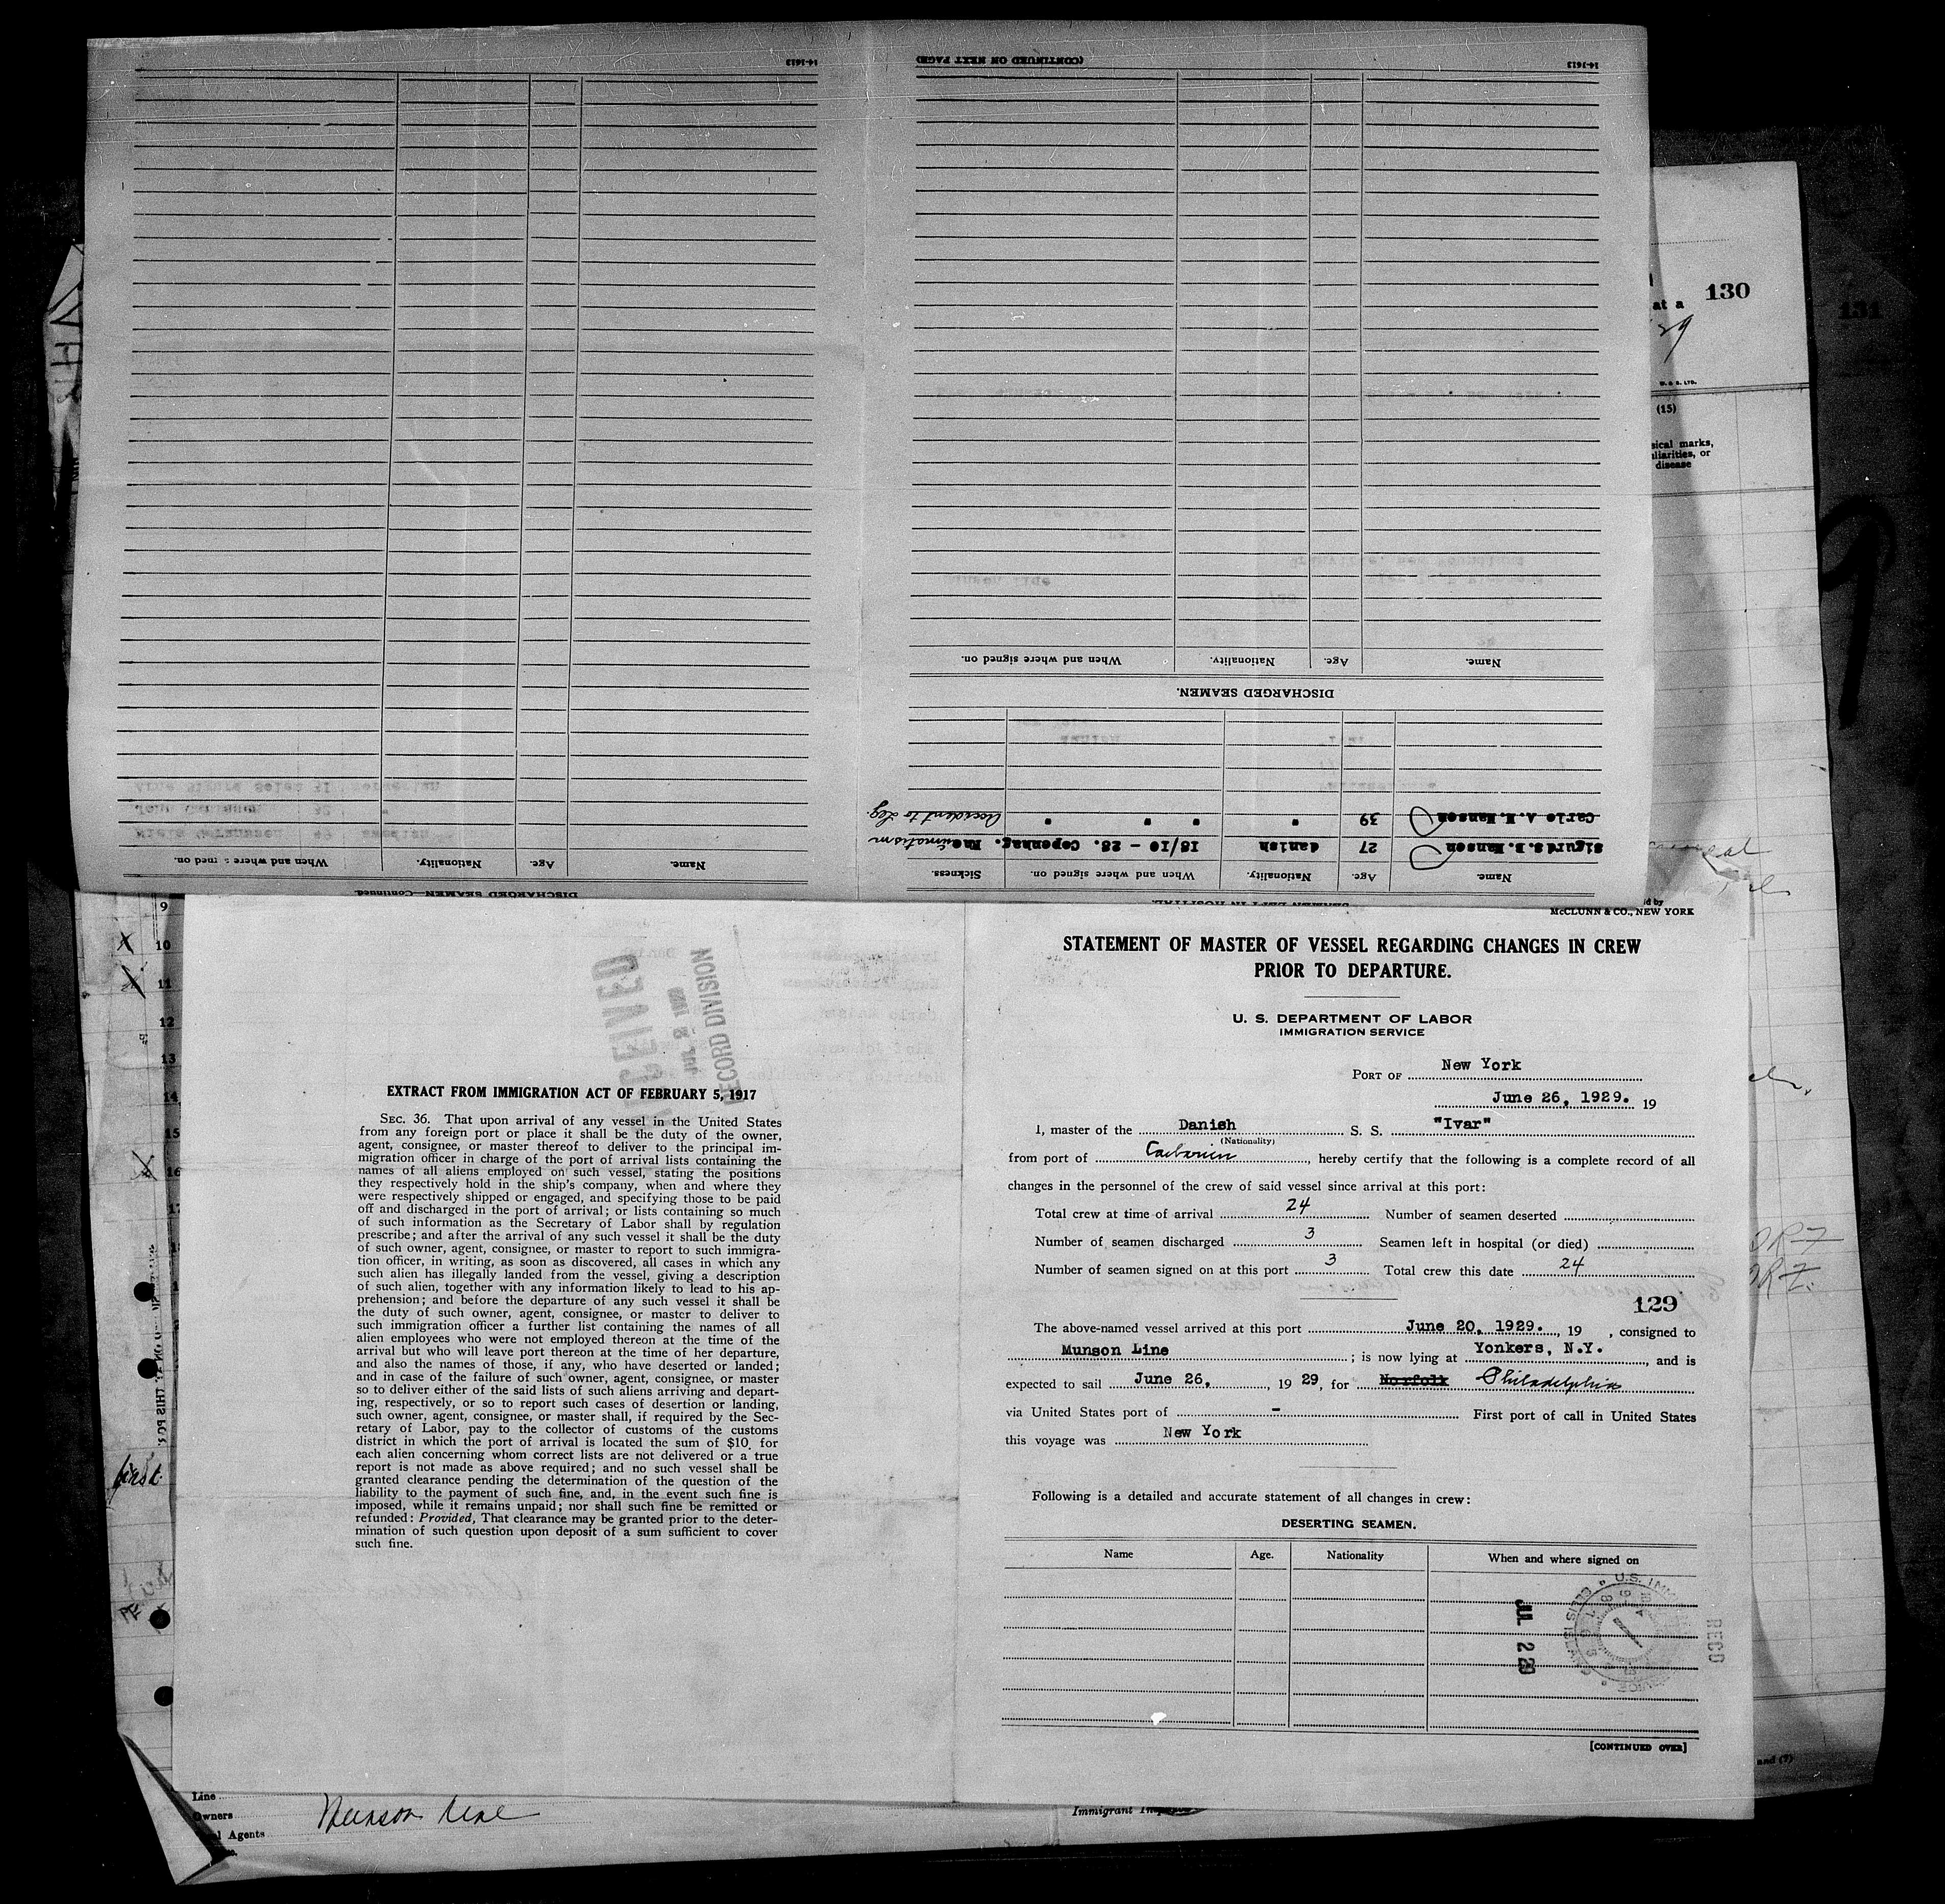 14-1613
(CONTINUED ON NEXT PAGE)
14-1613
Name. Age. Nationality. When and where signed on.
DISCHARGED SEAMEN.
Carlo A. K. Hansen 39 " " " " Accident to Leg.
Sigurd S. B. Hansen 27 danish 18/10 - 28. Copenhag. Rheumatism
Name. Age. Nationality. When and where signed on. Sickness.
Name. Age. Nationality. When and where signed on.
DISCHARGED SEAMEN—Continued
SEAMEN LEFT IN HOSPITAL.
130
at a
29
W. & S. LTD.
(15)
sical marks,
uliarities, or
disease
131
9
10
11
12
13
14
15
16
first
McCLUNN & CO., NEW YORK
RECEIVED
RECORD DIVISION
EXTRACT FROM IMMIGRATION ACT OF FEBRUARY 5, 1917
SEC. 36. That upon arrival of any vessel in the United States
from any foreign port or place it shall be the duty of the owner,
agent, consignee, or master thereof to deliver to the principal im-
migration officer in charge of the port of arrival lists containing the
names of all aliens employed on such vessel, stating the positions
they respectively hold in the ship's company, when and where they
were respectively shipped or engaged, and specifying those to be paid
off and discharged in the port of arrival; or lists containing so much
of such information as the Secretary of Labor shall by regulation
prescribe; and after the arrival of any such vessel it shall be the duty
of such owner, agent, consignee, or master to report to such immigra-
tion officer, in writing, as soon as discovered, all cases in which any
such alien has illegally landed from the vessel, giving a description
of such alien, together with any information likely to lead to his ap-
prehension; and before the departure of any such vessel it shall be
the duty of such owner, agent, consignee, or master to deliver to
such immigration officer a further list containing the names of all
alien employees who were not employed thereon at the time of the
arrival but who will leave port thereon at the time of her departure,
and also the names of those, if any, who have deserted or landed;
and in case of the failure of such owner, agent, consignee, or master
so to deliver either of the said lists of such aliens arriving and depart-
ing, respectively, or so to report such cases of desertion or landing,
such owner, agent, consignee, or master shall, if required by the Sec-
retary of Labor, pay to the collector of customs of the customs
district in which the port of arrival is located the sum of $10 for
each alien concerning whom correct lists are not delivered or a true
report is not made as above required; and no such vessel shall be
granted clearance pending the determination of the question of the
liability to the payment of such fine, and, in the event such fine is
imposed, while it remains unpaid; nor shall such fine be remitted or
refunded: Provided, That clearance may be granted prior to the deter-
mination of such question upon deposit of a sum sufficient to cover
such fine.
STATEMENT OF MASTER OF VESSEL REGARDING CHANGES IN CREW
PRIOR TO DEPARTURE.
U. S. DEPARTMENT OF LABOR
IMMIGRATION SERVICE
PORT OF New York
June 26, 1929. 19
I, master of the Danish S. S. "Ivar"
(Nationality)
from port of , hereby certify that the following is a complete record of all
changes in the personnel of the crew of said vessel since arrival at this port:
Total crew at time of arrival 24 Number of seamen deserted
Number of seamen discharged 3 Seamen left in hospital (or died)
Number of seamen signed on at this port 3 Total crew this date 24
129
The above-named vessel arrived at this port June 20, 1929. , 19 , consigned to
Munson Line ; is now lying at Yonkers, N.Y. , and is
expected to sail June 26, , 19 29, for Norfolk Philadelphia
via United States port of - First port of call in United States
this voyage was New York
Following is a detailed and accurate statement of all changes in crew:
DESERTING SEAMEN.
Name Age. Nationality When and where signed on
JUL 2 29
RECD
[CONTINUED OVER]
and (7)
Line
Owners Munson Line
Agents
Immigrant